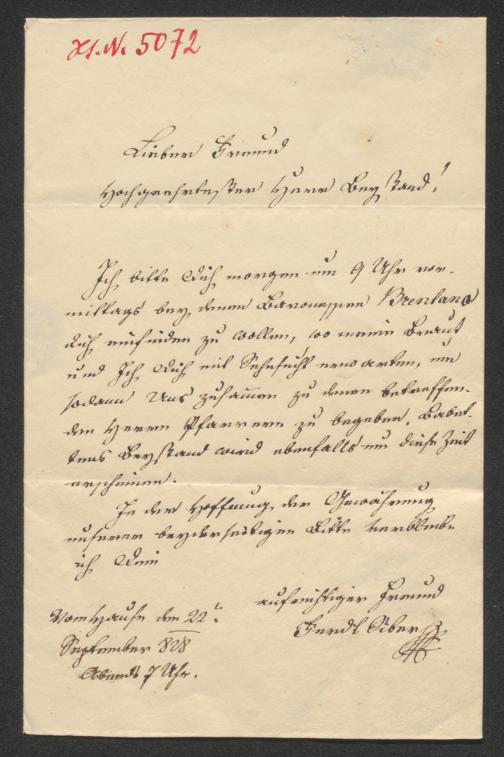 H.I.N. 5072
Lieber Freund
Hochgeehrtester Herr Beystand!
Ich bitte Dich morgen um 9 Uhr vor-
mittags bey denen Baronessen Brentano
Dich einfinden zu wollen, wo meine Braut
und Ich Dich mit Sehnsucht erwarten, um
sodann Uns zusammen zu denen betreffen-
den Herrn Pfarrern zu begeben. Babet-
tens Beystand wird ebenfalls um diese Zeit
erscheinen.
In der Hoffnung der Gewährung
unserer beyderseitigen Bitte verbleibe
ich Dein
aufrichtiger Freund
Ferdl. Siber
Vom Hause den 22t
September 828
Abends 7 Uhr.